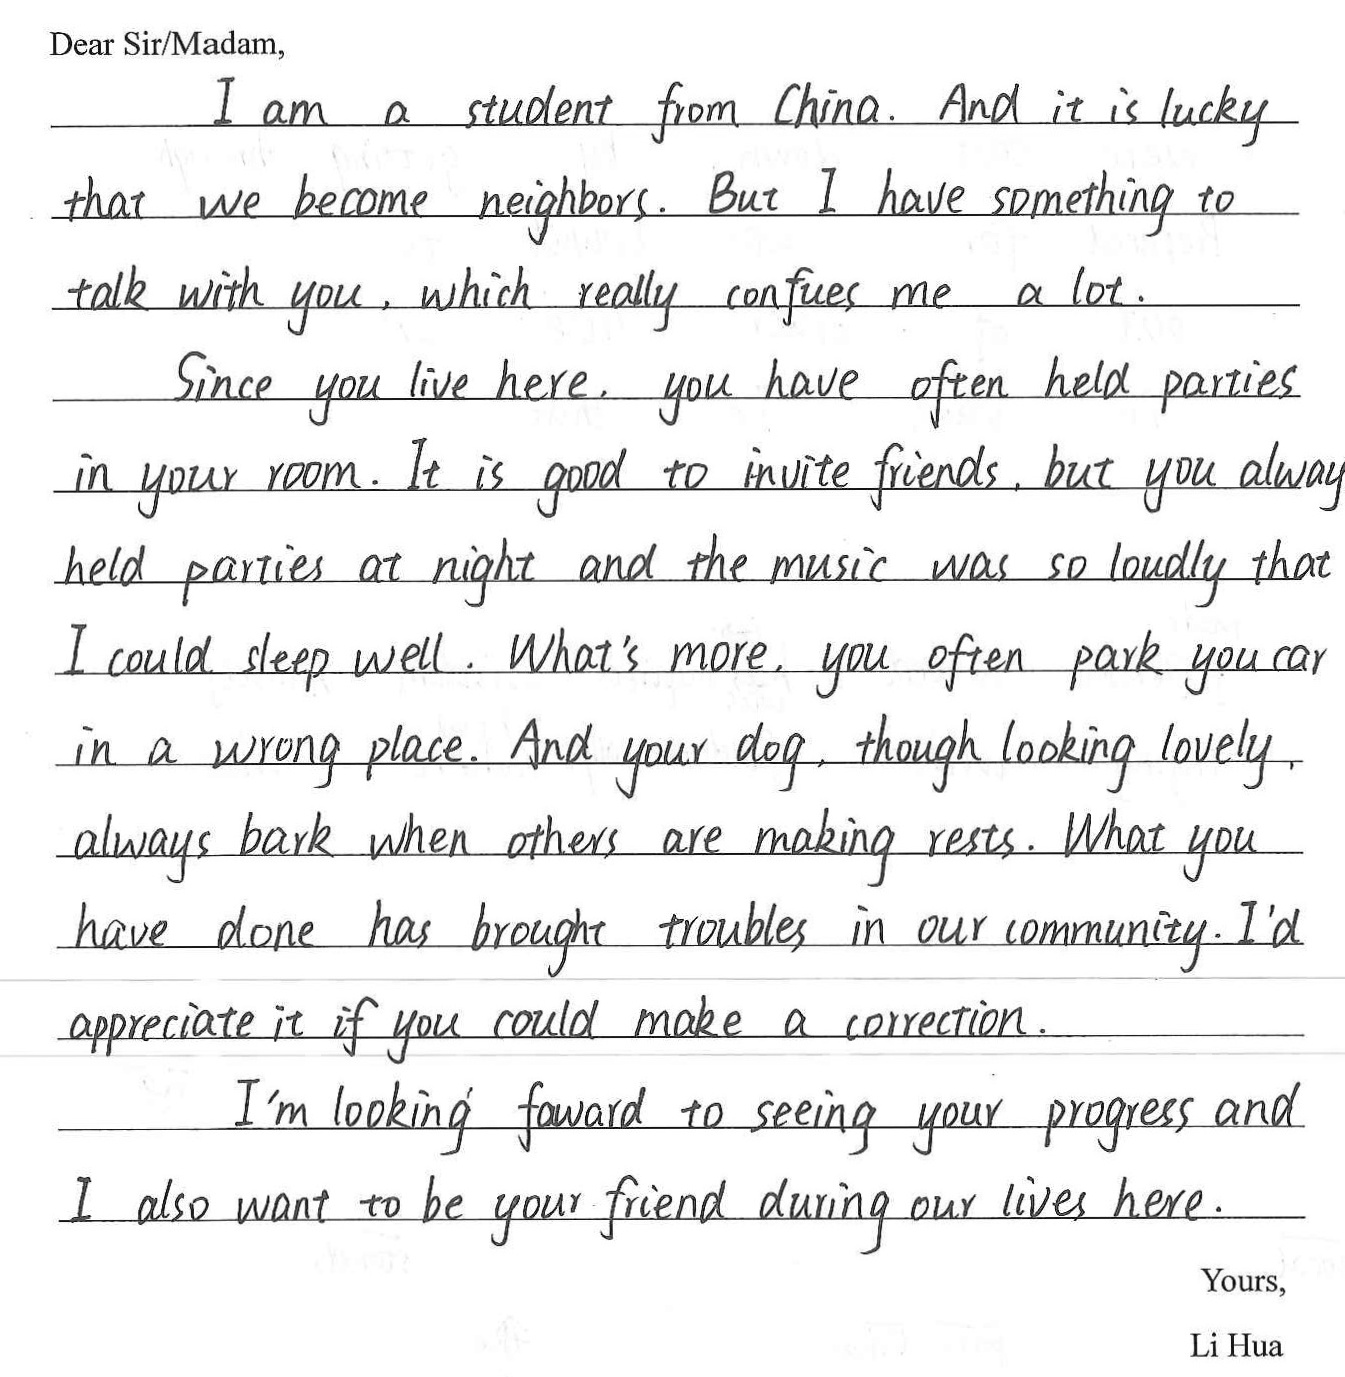 Dear Sir/Madam,
I am a student from China. And it is lucky
that we become neighbors. But I have something to
talk with you, which really confues me a lot.
Since you live here, you have often held parties
in your room. It is good to invite friends, but you alway
held parties at night and the music was so loudly that
I could sleep well. What's more, you often park you car
in a wrong place. And your dog, though looking lovely,
always bark when others are making rests. What you
have done has brought troubles in our community. I'd
appreciate it if you could make a correction.
I'm looking foward to seeing your progress and
I also want to be your friend during our lives here.
Yours,
Li Hua